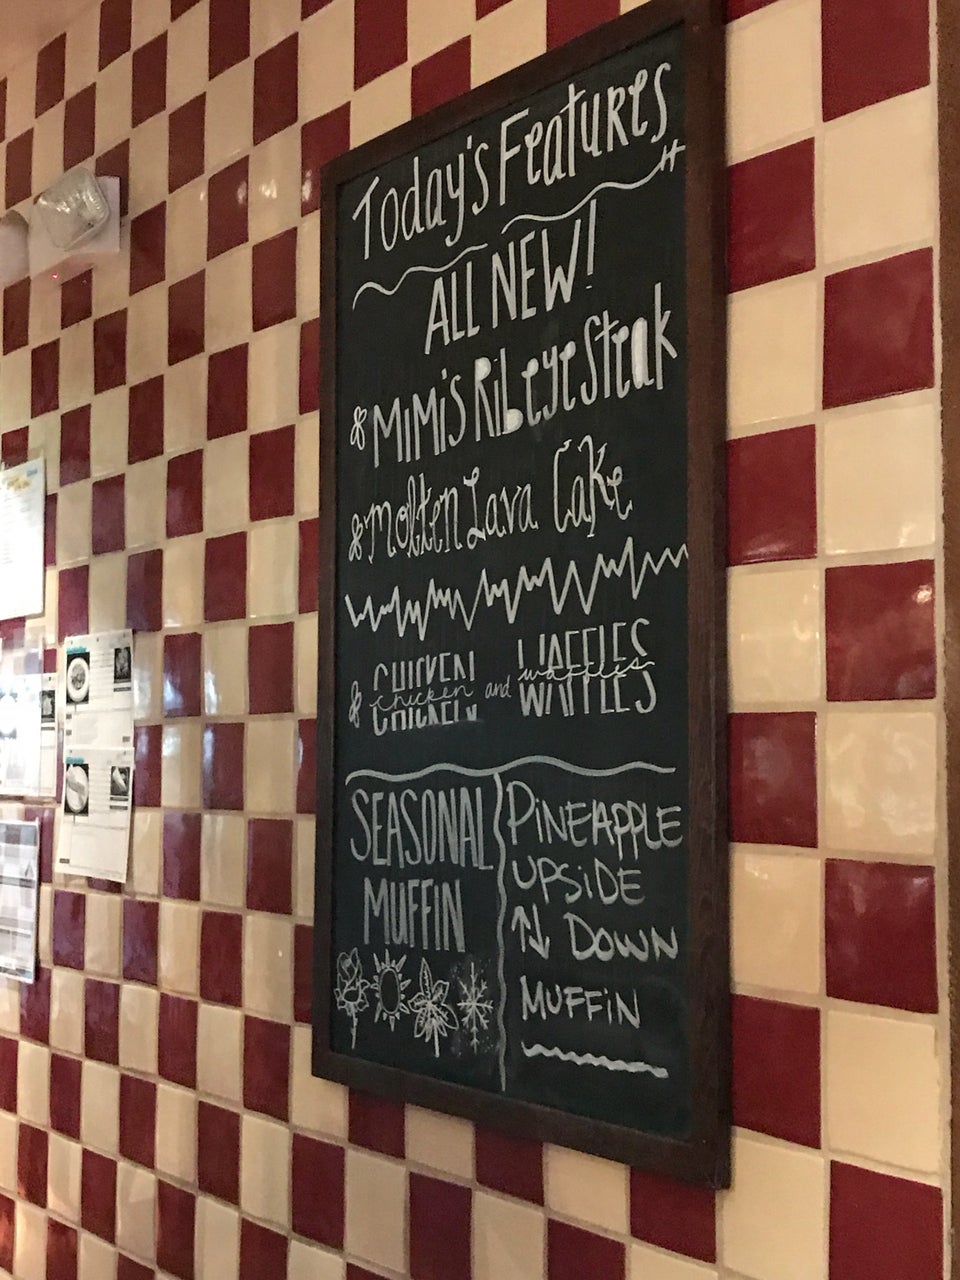 Today's Features
ALL NEW!
MiMi's Ribeye Steak
Molten Lava Cake
CHICKEN chicken and WAFFLES waffles
SEASONAL
MUFFIN
PiNEAPPLE
UPSiDE
DOWN
MUFFiN